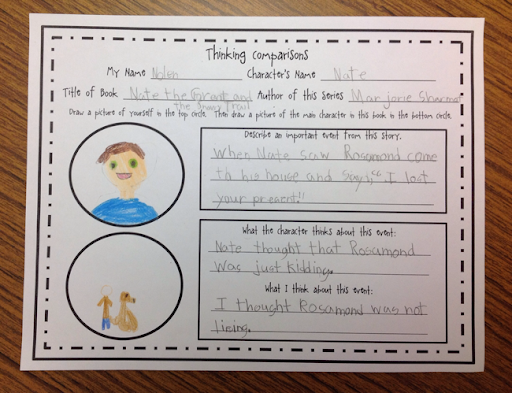 Thinking Comparisons
My Name Nolan Character's Name Nate
Title of Book Nate the Great and Author of this Series Marjorie Sharmat
the Snowy Trail
Draw a picture of yourself in the top circle. Then draw a picture of the main character in this book in the bottom circle.
Describe an important event from this story.
When Nate saw Rosamond come
to his house and says, "I lost
your present!"
What the character thinks about this event:
Nate thought that Rosamond
was just kidding.
What I think about this event:
I thought Rosamond was not
lieing.